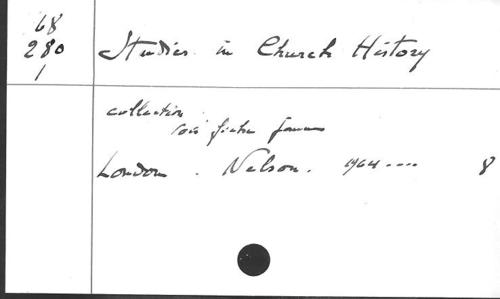 68
280
1
Studies in Church History
collection
voir fichier
London . Nelson . 1964 .... 8